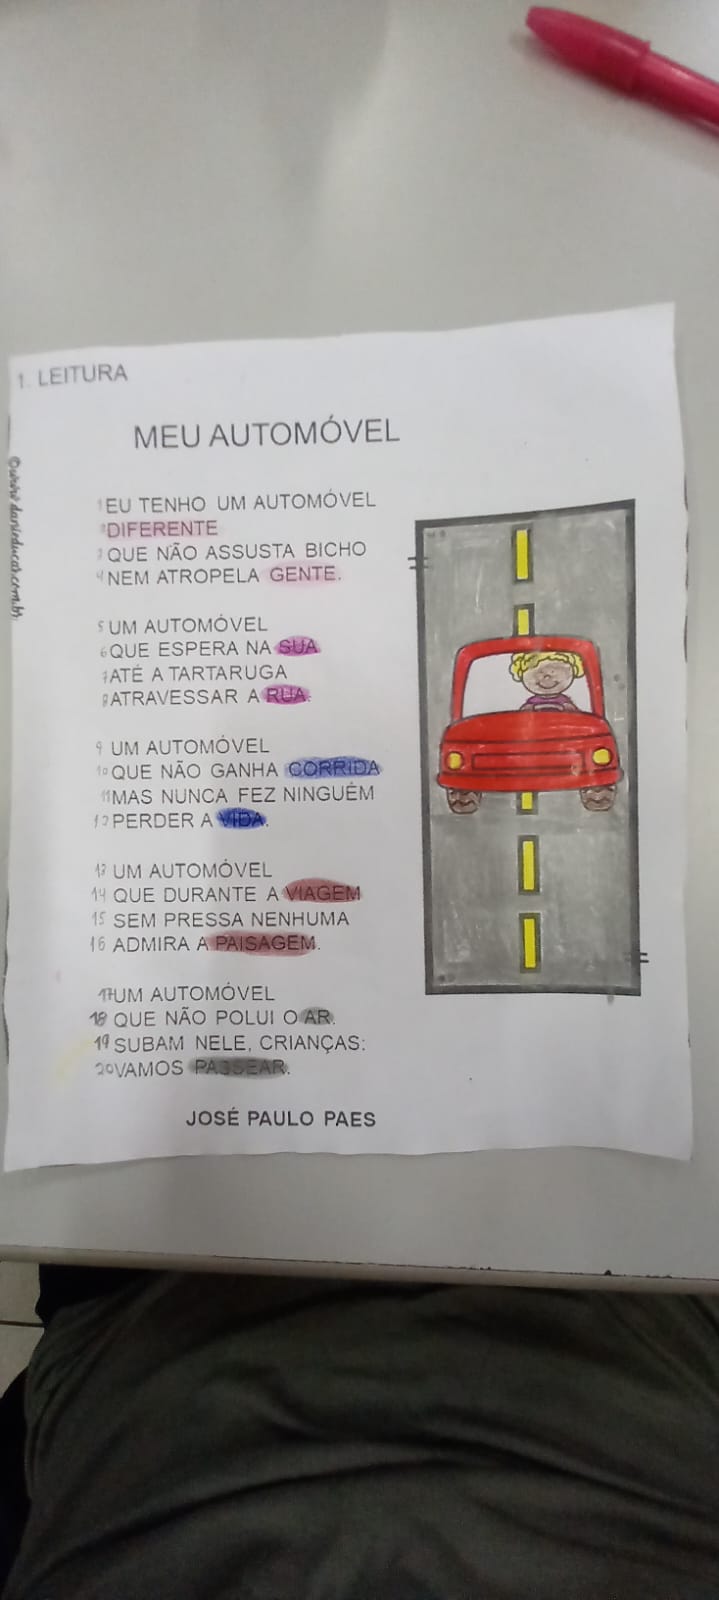 1. LEITURA
MEU AUTOMÓVEL
©www.danieducar.com.br
1 EU TENHO UM AUTOMÓVEL
2 DIFERENTE
3 QUE NÃO ASSUSTA BICHO
4 NEM ATROPELA GENTE.
5 UM AUTOMÓVEL
6 QUE ESPERA NA SUA
7 ATÉ A TARTARUGA
8 ATRAVESSAR A RUA.
9 UM AUTOMÓVEL
10 QUE NÃO GANHA CORRIDA
11 MAS NUNCA FEZ NINGUÉM
12 PERDER A VIDA.
13 UM AUTOMÓVEL
14 QUE DURANTE A VIAGEM
15 SEM PRESSA NENHUMA
16 ADMIRA A PAISAGEM.
17 UM AUTOMÓVEL
18 QUE NÃO POLUI O AR.
19 SUBAM NELE, CRIANÇAS:
20 VAMOS PASSEAR.
JOSÉ PAULO PAES